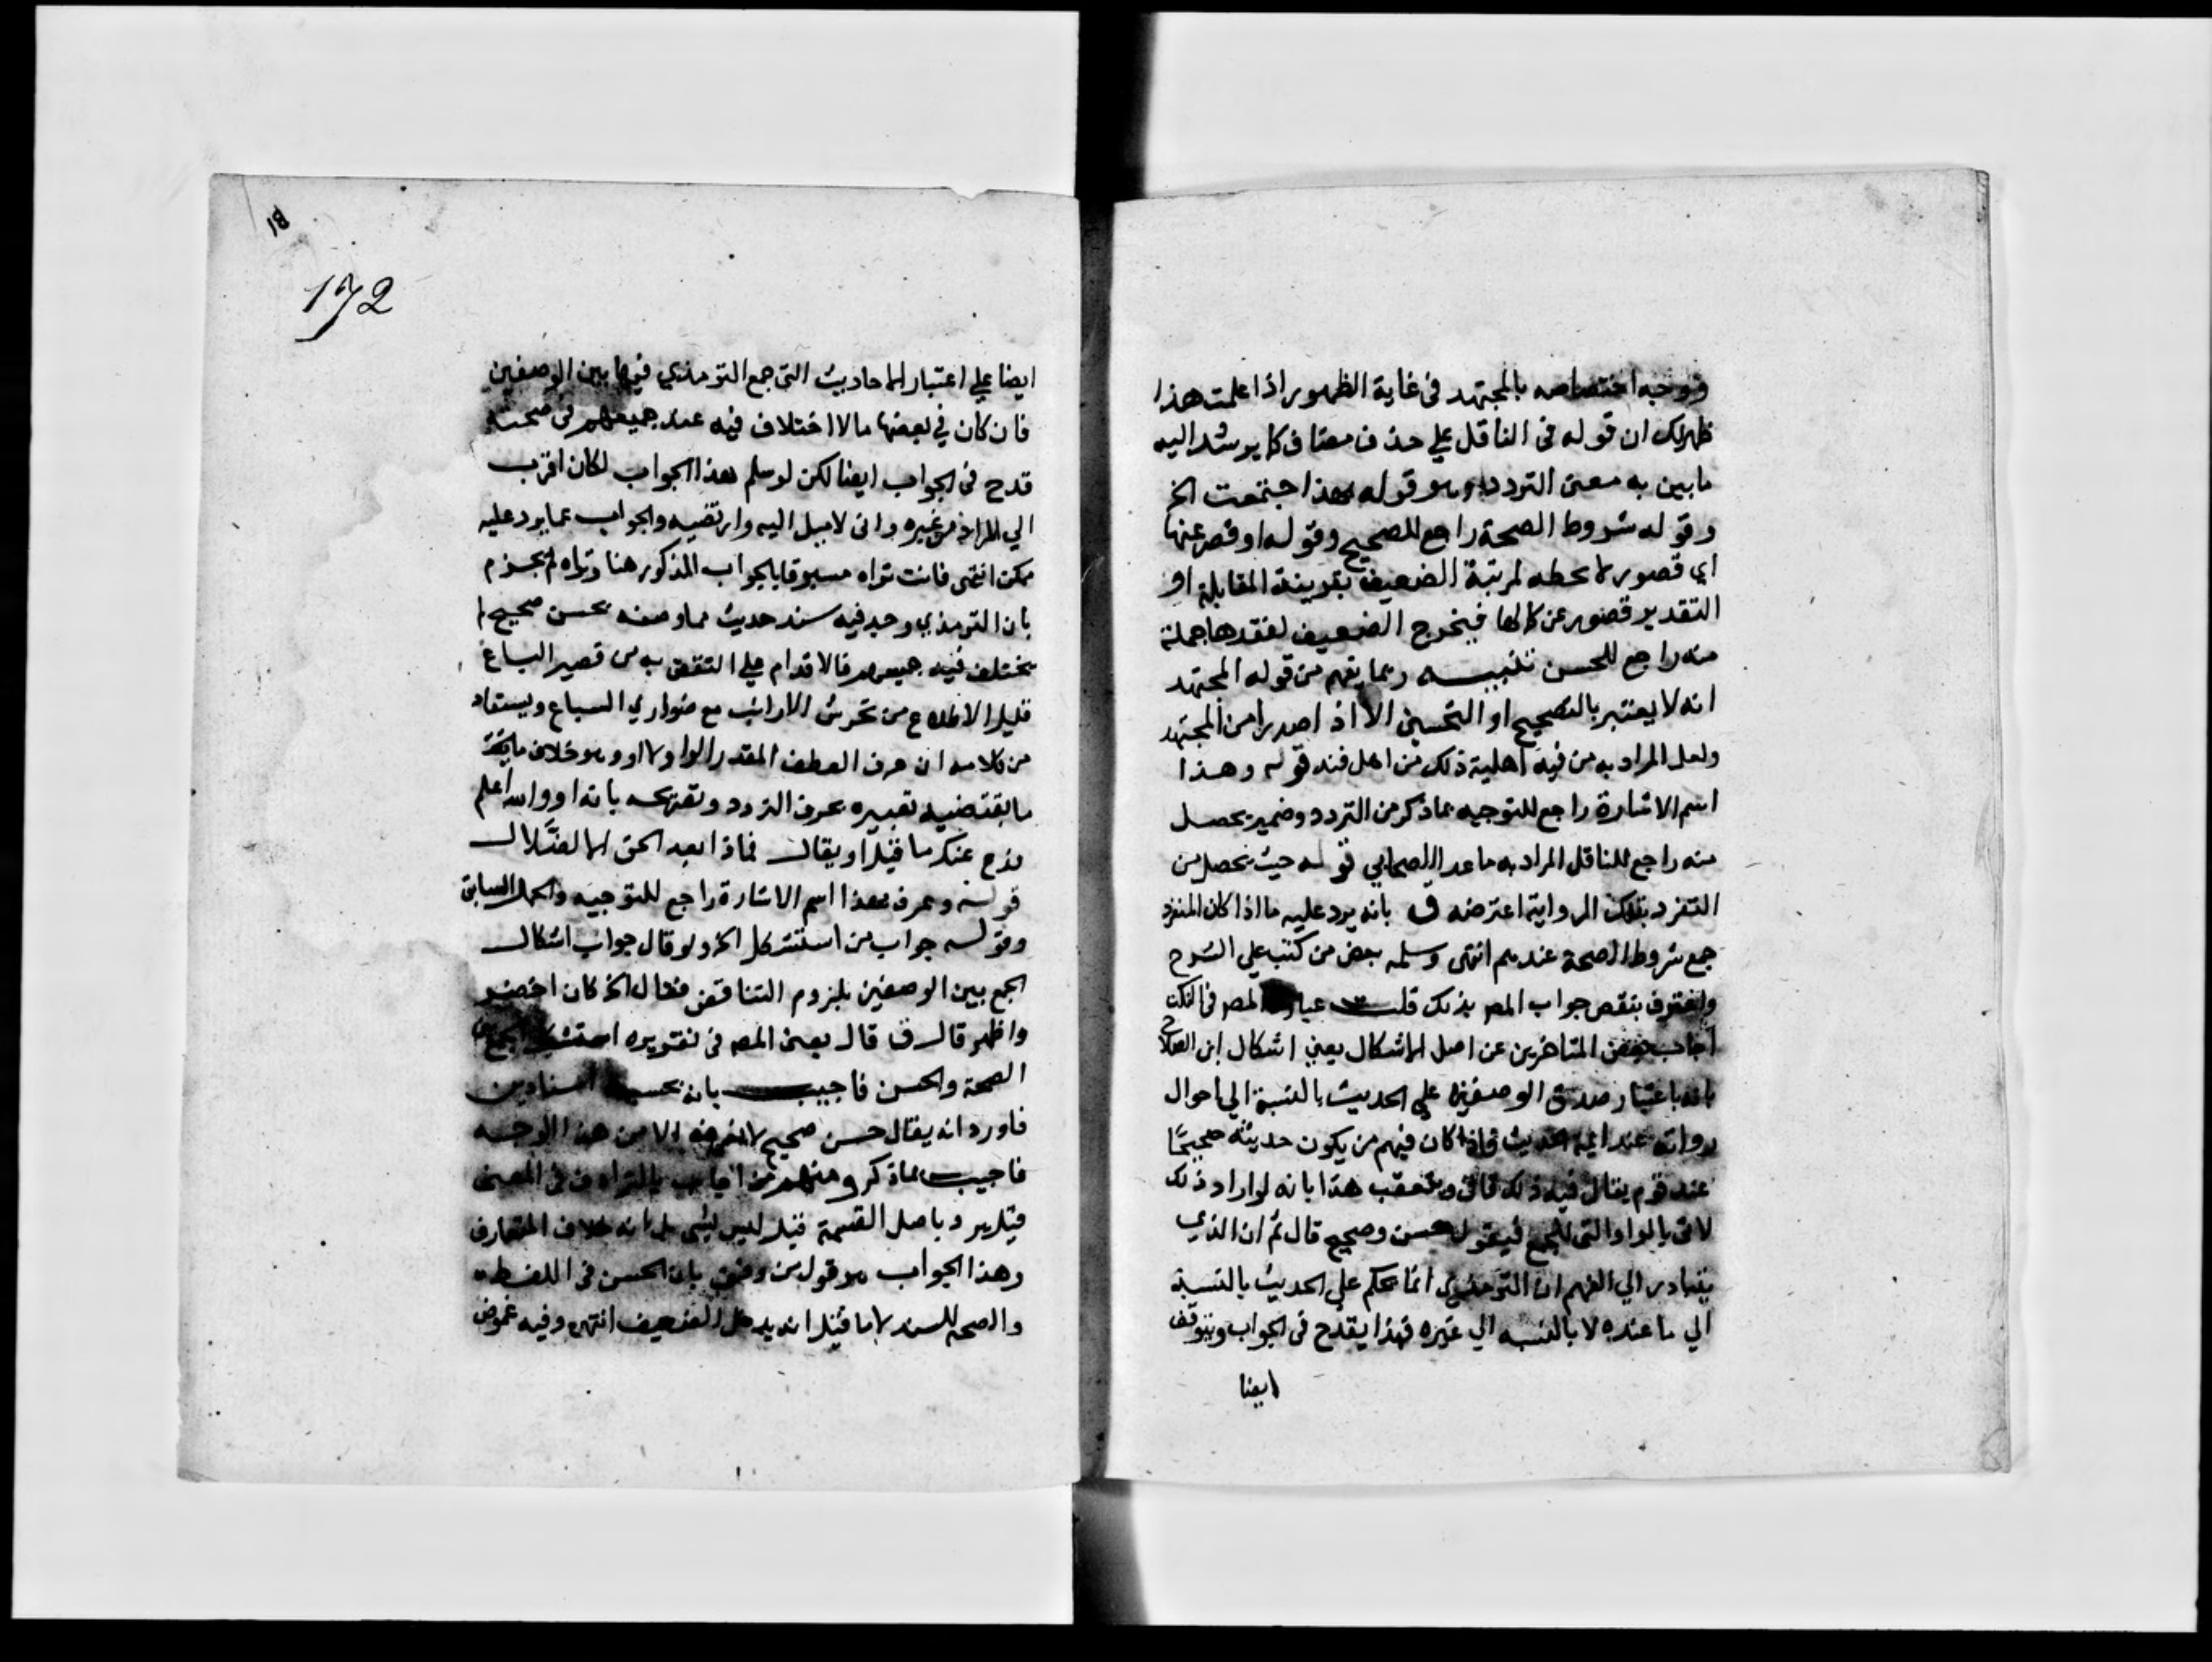 فوجه اختصاصه بالمجتهد فى غاية الظهور اذا علمت هذا
ظهرلك ان قوله فى الناقل علي حذف مضاف كما يرشد اليه
ما بين به معنى التردد وهو قوله هذا اجتمعت الخ
وقوله شروط الصحة راجع للصحيح وقوله او قصر عنها
اي قصور لا يحطه لمرتبة الضعيف بقرينة المقابلة او
التقدير قصور عن كمالها فيخرج الضعيف لفقدها جملة
منه راجع للحسن تنبيه ربما يفهم من قوله المجتهد
انه لا يعتبر بالتصحيح او التحسين الا اذ اصدر من المجتهد
ولعل المراد به من فيه اهلية ذلك من اهل فنه قوله وهذا
اسم الاشارة راجع للتوجيه بما ذكر من التردد وضمير يحصل
منه راجع للناقل المراد به ما عدا الصحابي قوله حيث يحصل من
التفرد بتلك الرواية اعترضه ق بانه يرد عليه ما اذا كان المنفرد
جمع شروط الصحة عندهم انتهى وسلمه بعض من كتب علي الشرح
واعترف بنقص جواب المصر بذلك قلت عبارة المصر فى النكت
اجاب بعض المتاخرين عن اصل الاشكال يعني اشكال ابن الصلاح
بانه باعتبار صدق الوصفين علي الحديث بالنسبة الي احوال
رواته عند ايمة الحديث فاذا كان فيهم من يكون حديثه صحيحا
عند قوم يقال فيه ذلك قال ويتعقب هذا بانه لو اراد ذلك
لاتى بالواو التى للجمع فيقول حسن وصحيح قال ثم ان الذي
يتبادر الي الفهم ان الترمذي انما يحكم علي الحديث بالنسبة
الي ما عنده لا بالنسبه الي غيره فهذا يقدح فى الجواب ويتوقف
ايضا
18
172
ايضا علي اعتبار الاحاديث التى جمع الترمذي فيها بين الوصفين
فان كان في بعضها ما لا اختلاف فيه عند جميعهم فى صحته
قدح فى الجواب ايضا لكن لو سلم هذا الجواب لكان اقرب
الي المراد من غيره وانى لاميل اليه وارتضيه والجواب عما يرد عليه
ممكن انتهى فانت تراه مسبوقا بالجواب المذكور هنا وتراه لم يجزم
بان الترمذي وجد فيه سند حديث مما وصفه بحسن صحيح لم
يختلف فيه جميعهم فالاقدام علي النقض به من قصير الباع
قليل الاطلاع من تحرش الارانب مع ضواري السباع ويستفاد
من كلامه ان حرف العطف المقدر الواو لا او وهو خلاف
ما يقتضيه تعبيره بحرف التردد وتصريحه بانه او والله اعلم
فدع عنك ما قيل او يقال فماذا بعد الحق الا الضلال
قوله وعرف بهذا اسم الاشارة راجع للتوجيه والحمل السابق
وقوله جواب من استشكل الخ ولو قال جواب اشكال
الجمع بين الوصفين بلزوم التناقض فقال الخ كان اخصر
واظهر قال ق قال يعنى المصر فى تقريره استشكل الجمع بين
الصحة والحسن فاجيب بانه بحسب اسنادين
فاورد انه يقال حسن صحيح لا نعرفه الا من هذا الوجه
فاجيب بما ذكر ومنهم من اجاب بالترادف فى المعنى
فيلرد باصل القسمة قيل ليس بشى بل انه خلاف المتعارف
وهذا الجواب هو قول من وفق بان الحسن فى اللفظ
والصحه للسند لا ما قيل انه يدخل الضعيف انتهى وفيه غموض